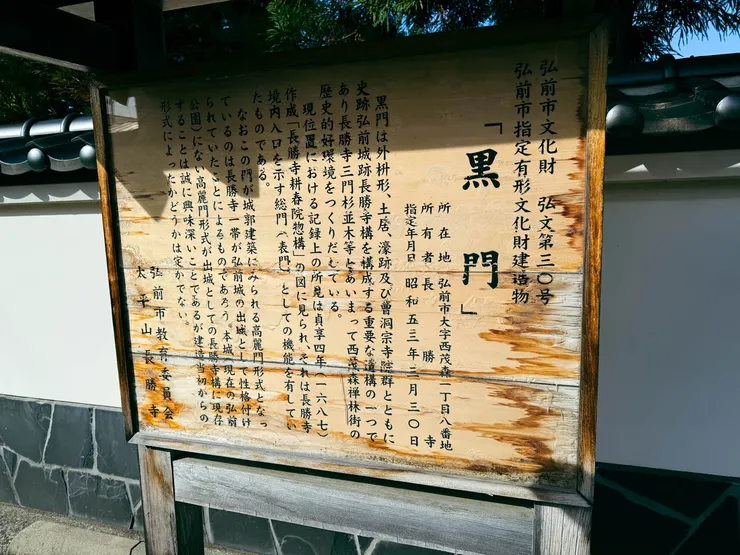 弘前市文化財　弘文第三〇号
弘前市指定有形文化財建造物
「黒門」
所在地　弘前市大字西茂森一丁目八番地
所有者　長勝寺
指定年月日　昭和五三年三月三〇日
黒門は外枡形、土居、濠跡及び曹洞宗寺院群とともに
史跡弘前城跡長勝寺構を構成する重要な遺構の一つで
あり長勝寺三門杉並木等とあいまって西茂森禅林街の
歴史的好環境をつくりだしている。
現位置における記録上の所見は貞享四年（一六八七）
作成「長勝寺耕春院惣構」の図に見られ、それは長勝寺
境内入口を示す総門（表門）としての機能を有してい
たものである。
なおこの門が城郭建築にみられる高麗門形式となっ
ているのは長勝寺一帯が弘前城の出城として性格付け
られていたことによるものであろう。本城（現在の弘前
公園）にない高麗門形式が出城としての長勝寺構に現存
することは誠に興味深いことであるが建造当初からの
形式によったかどうかは定かでない。
弘前市教育委員会
太平山長勝寺